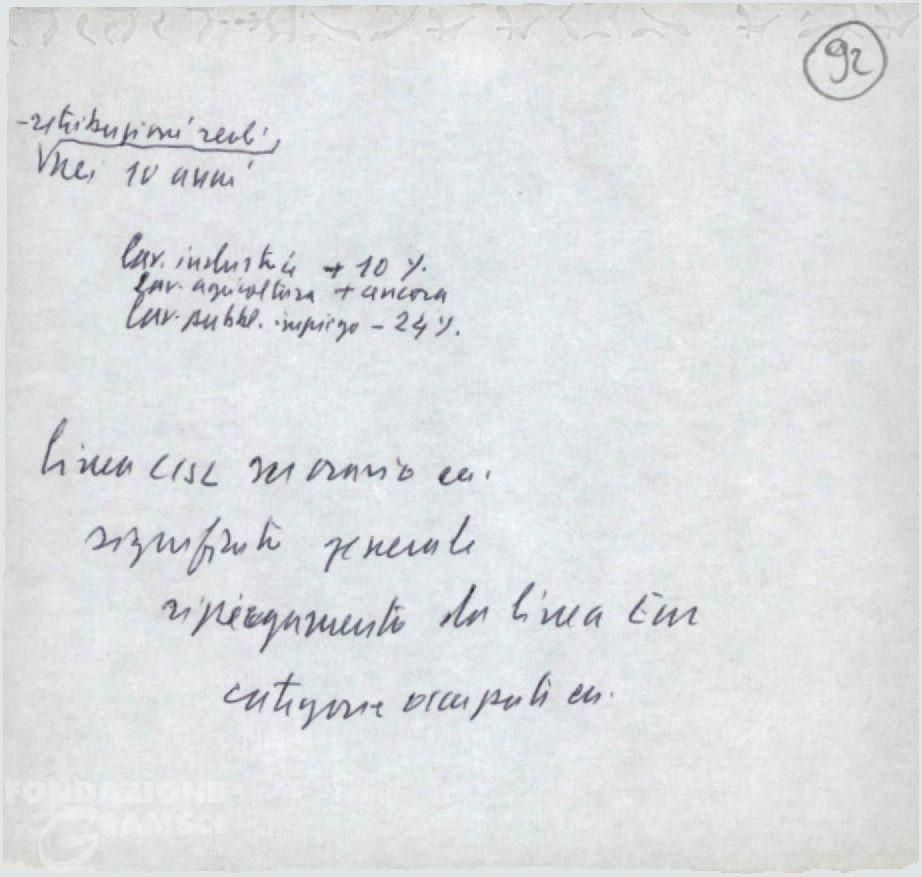 92
- retribuzioni reali,
nei 10 anni
lav. industria + 10 %.
lav. agricoltura + ancora
lav. pubbl. impiego - 24 %.
linea CISL su orario
significato generale
ripiegamento da linea
categorie occupati
FONDAZIONE
GRAMSCI